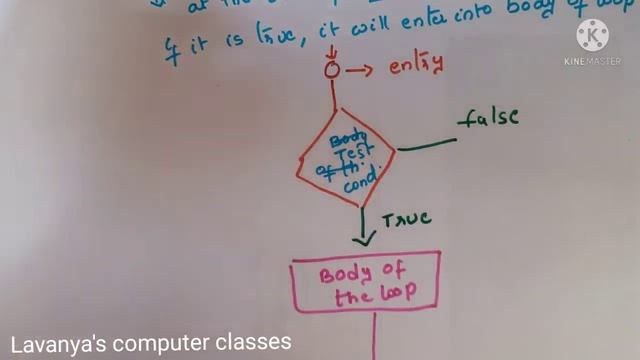 at the
if it is true, it will enter into body of loop
entry
false
Body
Test
of th
cond.
True
Body of
the loop
KINEMASTER
Lavanya's computer classes